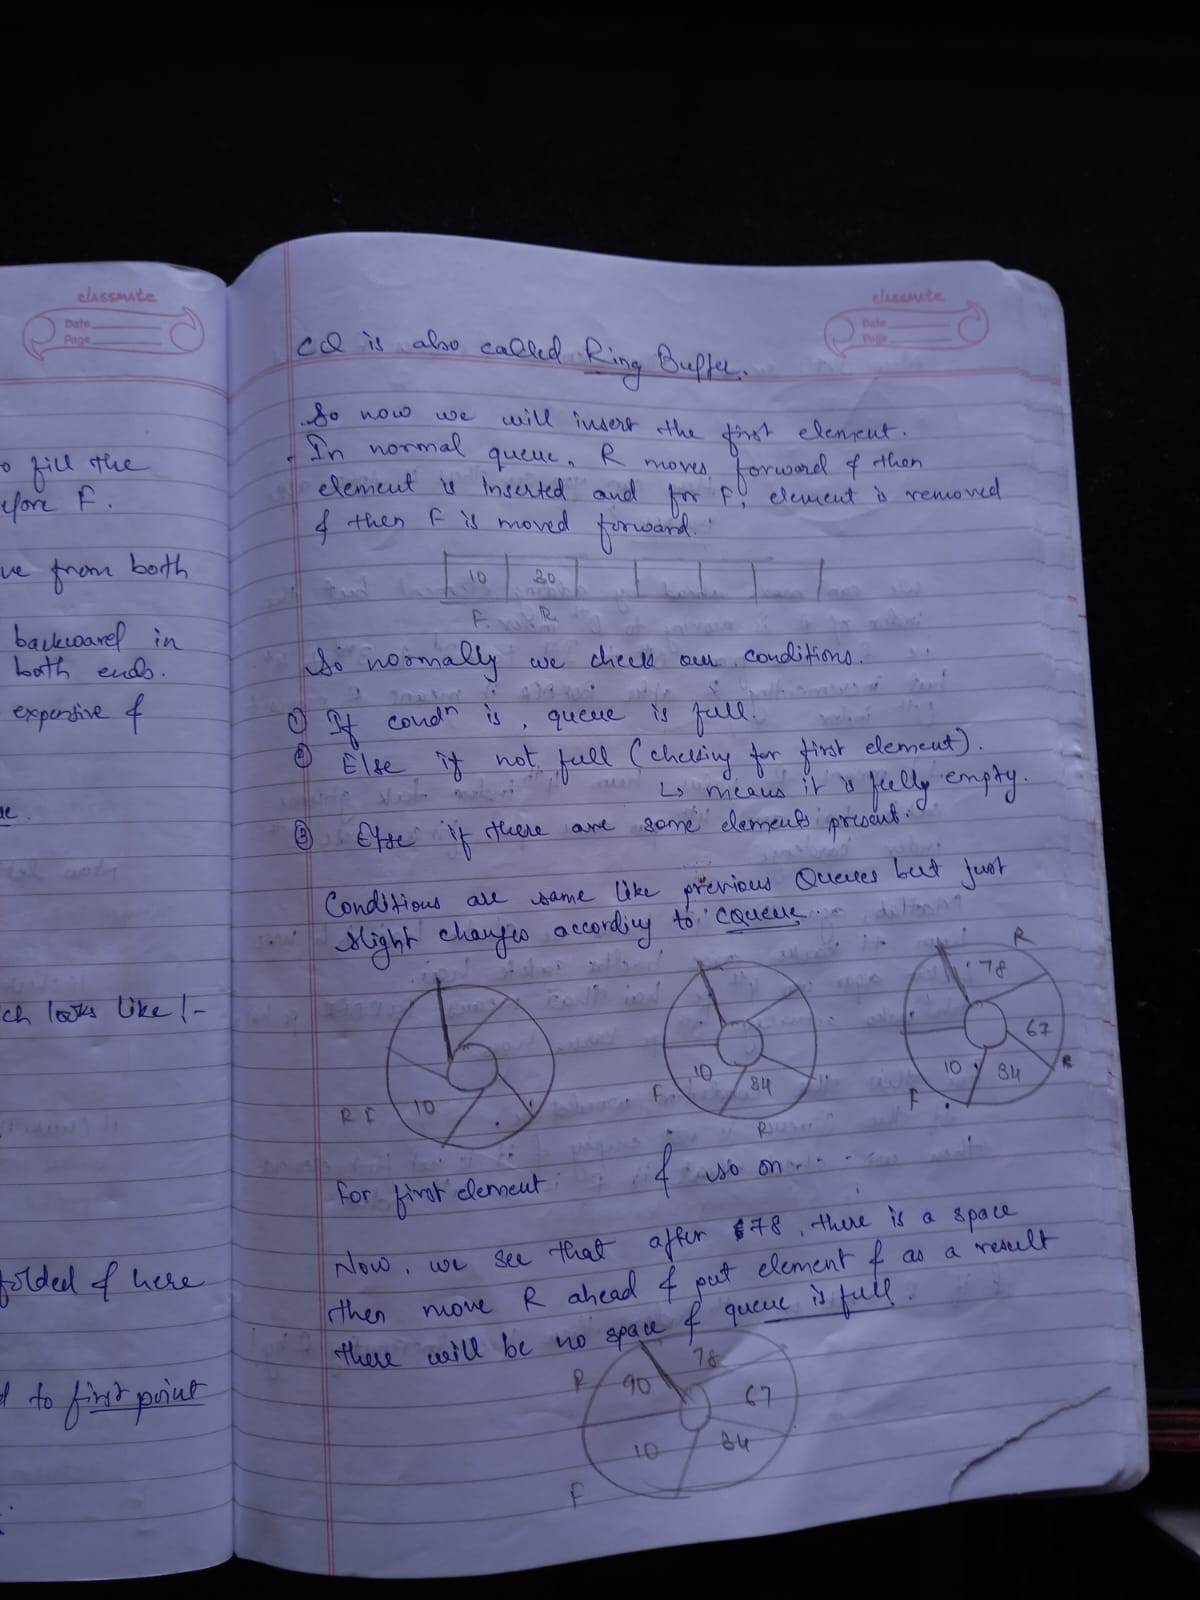 classmate
Date
Page
o fill the
efore F.
ve from both
backward in
both ends.
expensive &
ch looks like !-
folded & here
d to first point
classmate
Date
Page
CQ is also called Ring Buffer.
So now we will insert the first element.
In normal queue, R moves forward & then
element is inserted and for F, element is removed
& then F is moved forward.
10 20
F R
So normally we check our conditions.
① If condⁿ is, queue is full.
② Else if not full (checking for first element).
↳ means it is fully empty.
③ Else if there are some elements present.
Conditions are same like previous Queues but just
slight changes according to CQueue.
R F 10
F 10 34 R
R 78 67 R 34 10 F
For first element & so on....
Now, we see that after 78, there is a space
then move R ahead & put element & as a result
there will be no space & queue is full.
R 90 78 67 34 10 F